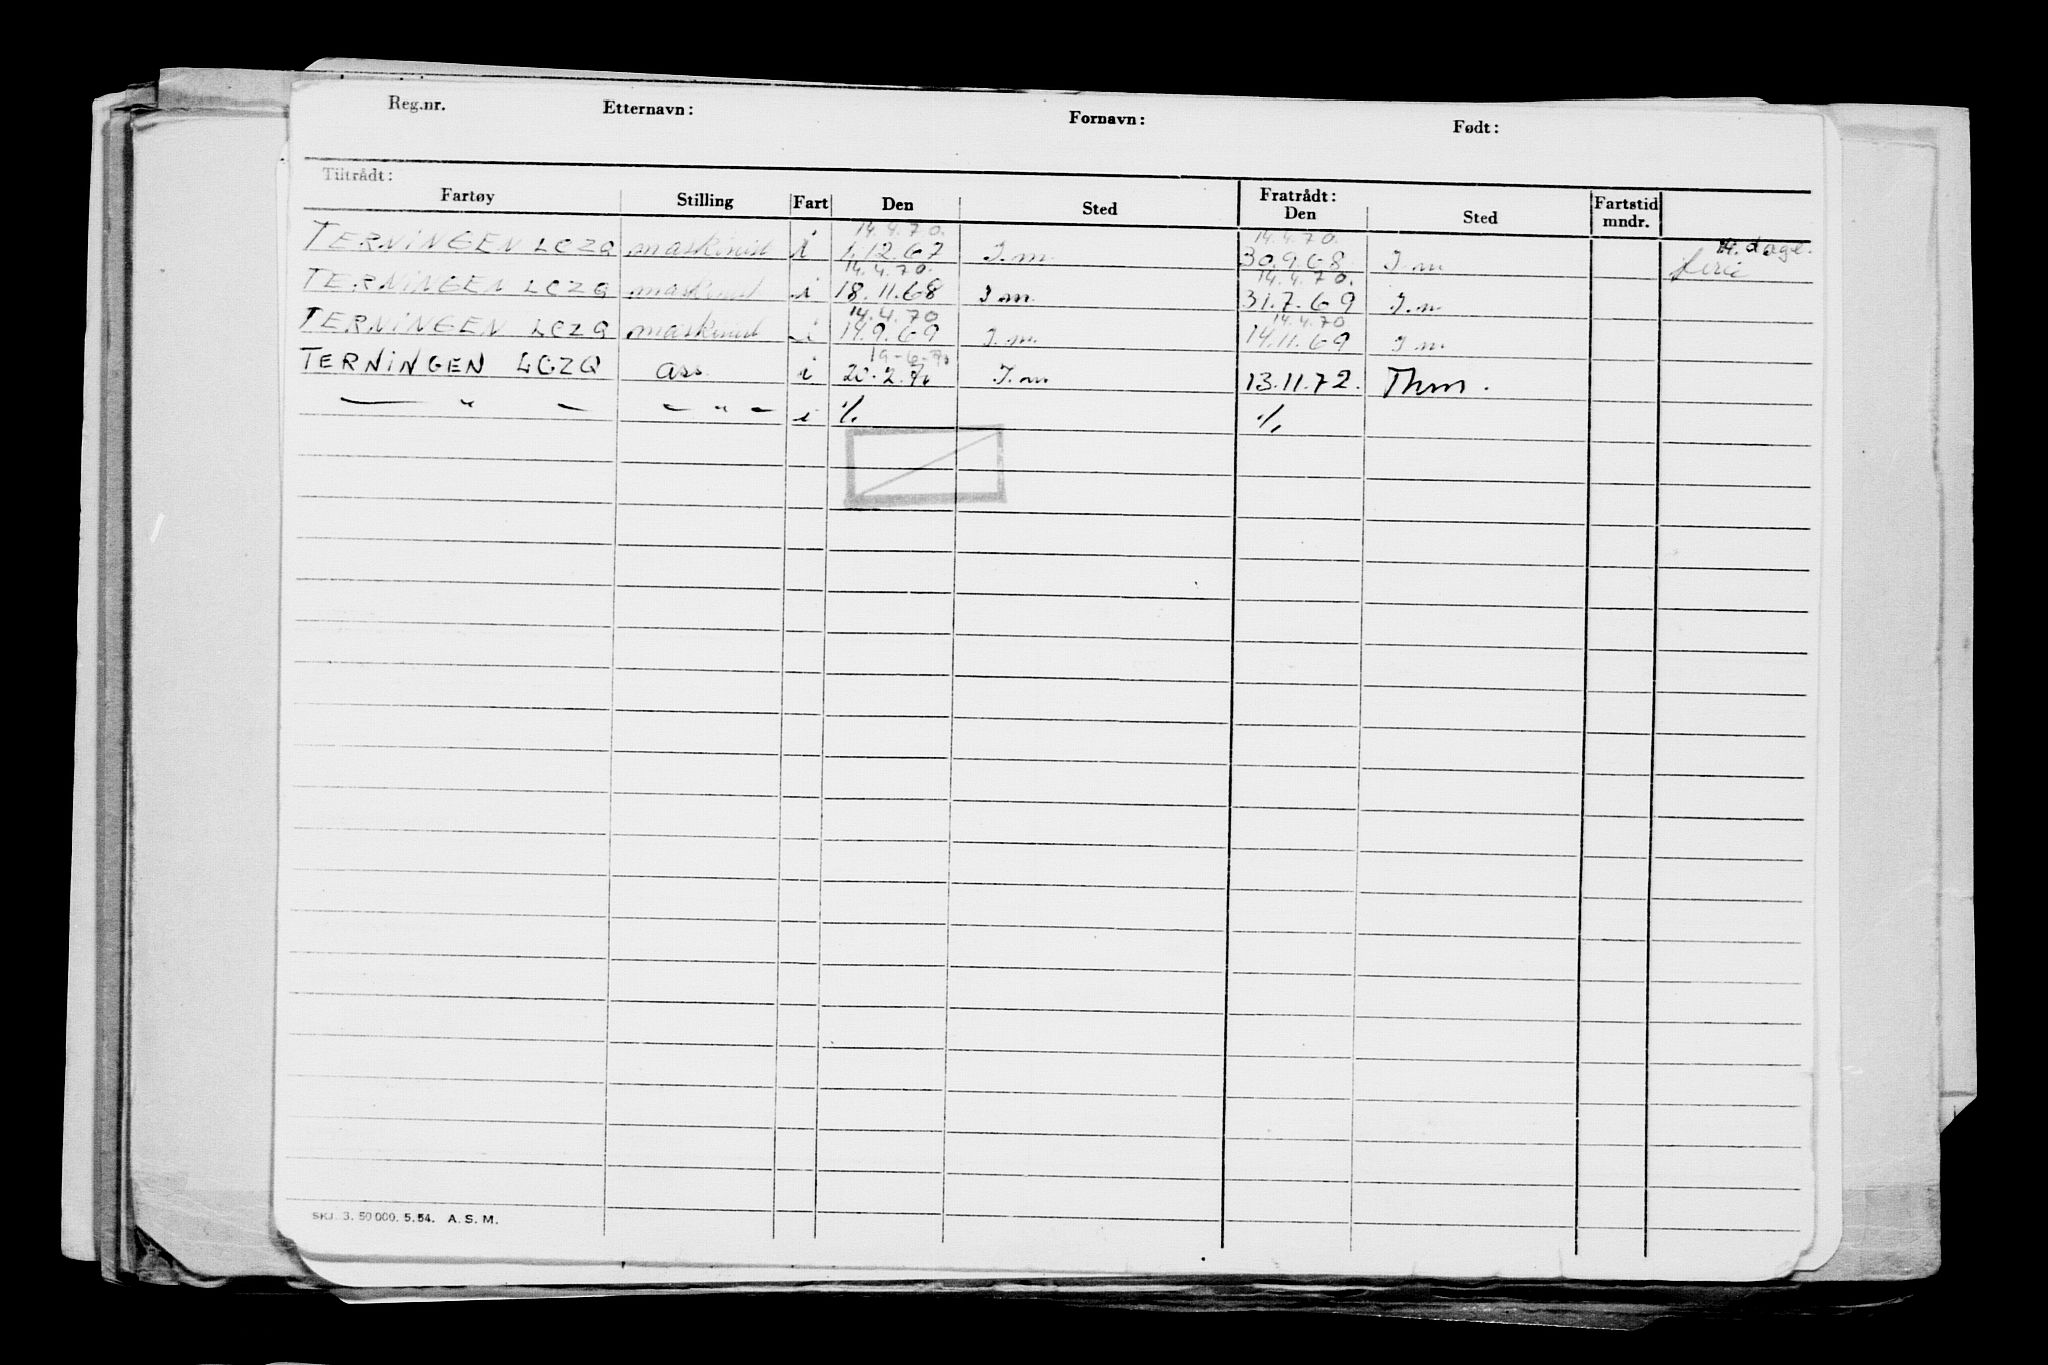 Reg.nr. Etternavn: Fornavn: Født:
Tiltrådt: Fratrådt:
Fartøy Stilling Fart Den Sted Den Sted Fartstid mndr.
14.4.70. 14.4.70. 14 dage.
TERNINGEN LCZQ maskinist i 1.12.67 I.m. 30.9.68 I.m ferie
14.4.70. 14.4.70.
TERNINGEN LCZQ maskinist i 18.11.68 I m. 31.7.69 I.m
14.4.70 14.4.70
TERNINGEN LCZQ maskinist i 14.9.69 I.m. 14.11.69 I m
19-6-70
TERNINGEN LCZQ ass. i 20.2.70 I.m 13.11.72. Thm.
— " — — " — i ·/. ·/.
SKJ. 3. 50 000. 5.54. A. S. M.